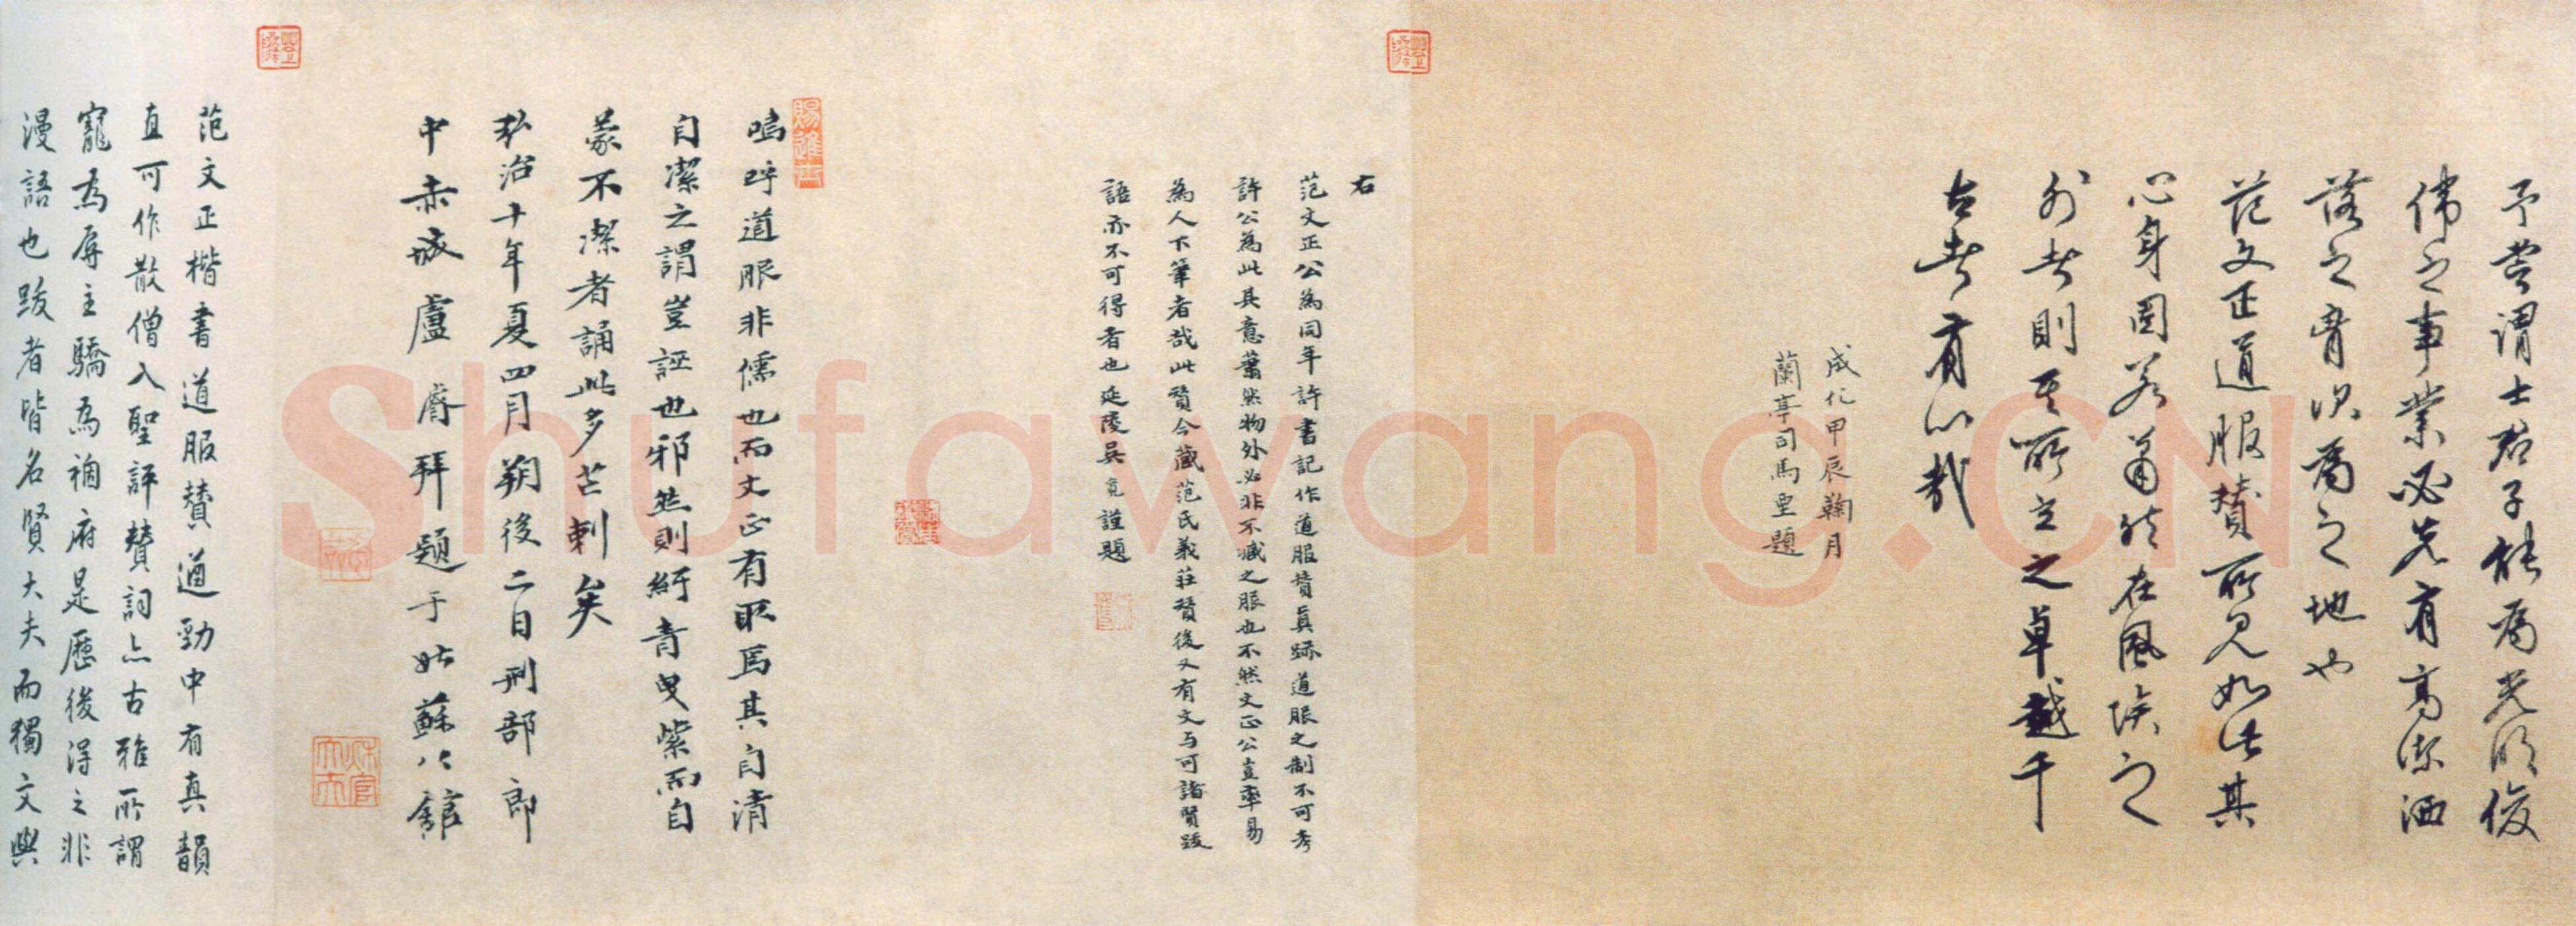 予嘗謂士君子能為光明俊
偉之事業必先有高潔洒
落之胷次為之地也
范文正道服贊所見如此其
心身固若蕭然在風埃之
外者則其所立之卓越千
古者有以哉
成化甲辰鞠月
蘭亭司馬垔題
右
范文正公為同年許書記作道服贊真跡道服之制不可考
許公為此其意蕭然物外必非不臧之服也不然文正公豈率易
為人下筆者哉此贊今藏范氏義莊贊後又有文與可諸賢跋
語亦不可得者也延陵吳寬謹題
嗚呼道服非儒也而文正有取焉其自清
自潔之謂豈誣也邪然則紆青曳紫而自
蒙不潔者誦此多芒刺矣
弘治十年夏四月朔後二日刑部郎
中赤城盧 濬拜題于姑蘇公館
范文正楷書道服贊遒勁中有真韻
直可作散僧入聖評贊詞亦古雅所謂
寵為辱主驕為禍府是歷後得之非
漫語也跋者皆名賢大夫而獨文與
Shufawang.CN